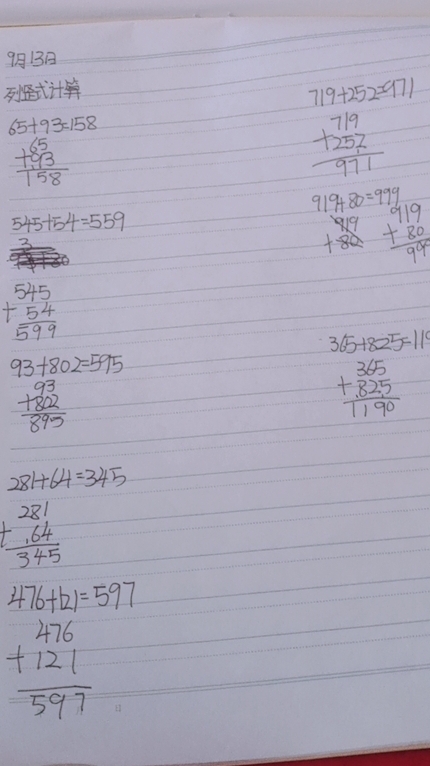 9月13日
列竖式计算
65+93=158
65
+93
158
545+54=559
545
+ 54
599
93+802=595
93
+802
895
281+64=345
281
+ 64
345
476+121=597
476
+121
597
719+252=971
719
+252
971
919+80=999
919
+ 80
919
+ 80
99
365+825=119
365
+825
1190